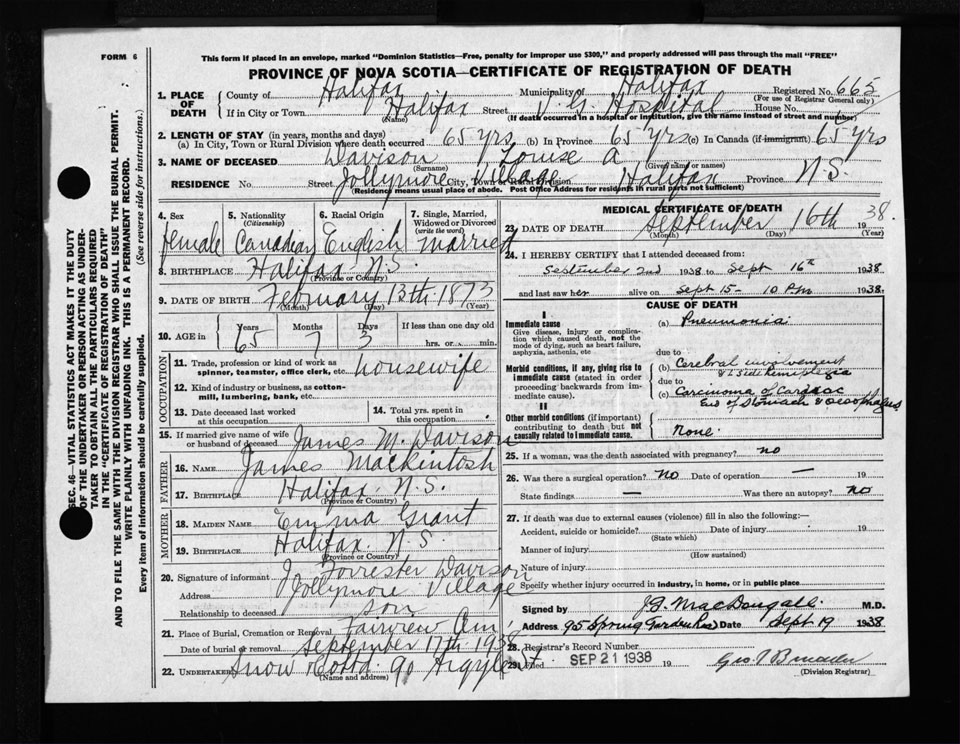 FORM 6
This form if placed in an envelope, marked "Dominion Statistics—Free, penalty for improper use $300," and properly addressed will pass through the mail "FREE"
PROVINCE OF NOVA SCOTIA—CERTIFICATE OF REGISTRATION OF DEATH
SEC. 46—VITAL STATISTICS ACT MAKES IT THE DUTY
OF THE UNDERTAKER OR PERSON ACTING AS UNDER-
TAKER TO OBTAIN ALL THE PARTICULARS REQUIRED
IN THE "CERTIFICATE OF REGISTRATION OF DEATH"
AND TO FILE THE SAME WITH THE DIVISION REGISTRAR WHO SHALL ISSUE THE BURIAL PERMIT.
WRITE PLAINLY WITH UNFADING INK. THIS IS A PERMANENT RECORD.
Every item of information should be carefully supplied. (See reverse side for instructions.)
1. PLACE OF DEATH County of Halifax Municipality of Halifax Registered No. 665
(For use of Registrar General only)
If in City or Town Halifax Street V. G. Hospital House No.
(Name) (If death occurred in a hospital or institution, give the name instead of street and number)
2. LENGTH OF STAY (in years, months and days)
(a) In City, Town or Rural Division where death occurred 65 yrs (b) In Province 65 yrs (c) In Canada (if immigrant) 65 yrs
3. NAME OF DECEASED Davison Louise A
(Surname) (Given name or names)
RESIDENCE No. Street Jollymore Village City, Town or Rural Division Halifax Province N.S.
(Residence means usual place of abode. Post Office Address for residents in rural parts not sufficient)
4. Sex female
5. Nationality (Citizenship) Canadian
6. Racial Origin English
7. Single, Married, Widowed or Divorced (write the word) married
8. BIRTHPLACE Halifax N.S.
(Province or Country)
9. DATE OF BIRTH February 13th 1873
(Month) (Day) (Year)
10. AGE in Years 65 Months 7 Days 3 If less than one day hrs. or min.
OCCUPATION
11. Trade, profession or kind of work as spinner, teamster, office clerk, etc. housewife
12. Kind of industry or business, as cotton-mill, lumbering, bank, etc.
13. Date deceased last worked at this occupation
14. Total yrs. spent in this occupation
15. If married give name of wife or husband of deceased James M. Davison
FATHER
16. NAME James Mackintosh
17. BIRTHPLACE Halifax N.S.
(Province or Country)
MOTHER
18. MAIDEN NAME Emma Grant
19. BIRTHPLACE Halifax N.S.
(Province or Country)
20. Signature of informant J Forrester Davison
Address Jollymore Village
Relationship to deceased son
21. Place of Burial, Cremation or Removal Fairview Cem
Date of burial or removal September 17th 1938
22. UNDERTAKER Snow & Co Ltd. 90 Argyle St.
(Name and address)
MEDICAL CERTIFICATE OF DEATH
23. DATE OF DEATH September 16th 1938.
(Month) (Day) (Year)
24. I HEREBY CERTIFY that I attended deceased from:
September 2nd 1938 to Sept 16th 1938
and last saw her alive on Sept 15— 10 P.M 1938.
CAUSE OF DEATH
I
Immediate cause (a) Pneumonia
Give disease, injury or complica-
tion which caused death, not the
mode of dying, such as heart failure,
asphyxia, asthenia, etc due to
Morbid conditions, if any, giving rise to
immediate cause (stated in order
proceeding backwards from im-
mediate cause).
(b) Cerebral involvement
due to
(c) Carcinoma of Cardiac
End of Stomach & Oesophagus
II
Other morbid conditions (if important)
contributing to death but not
causally related to immediate cause.
None.
25. If a woman, was the death associated with pregnancy? no
26. Was there a surgical operation? NO Date of operation — 19
State findings — Was there an autopsy? No
27. If death was due to external causes (violence) fill in also the following:—
Accident, suicide or homicide? Date of injury 19
(State which)
Manner of injury
(How sustained)
Nature of injury
Specify whether injury occurred in industry, in home, or in public place
Signed by J.G. MacDougall. M.D.
Address 95 Spring Garden Rd Date Sept 19 1938
28. Registrar's Record Number
29. Filed SEP 21 1938 19
(Division Registrar)